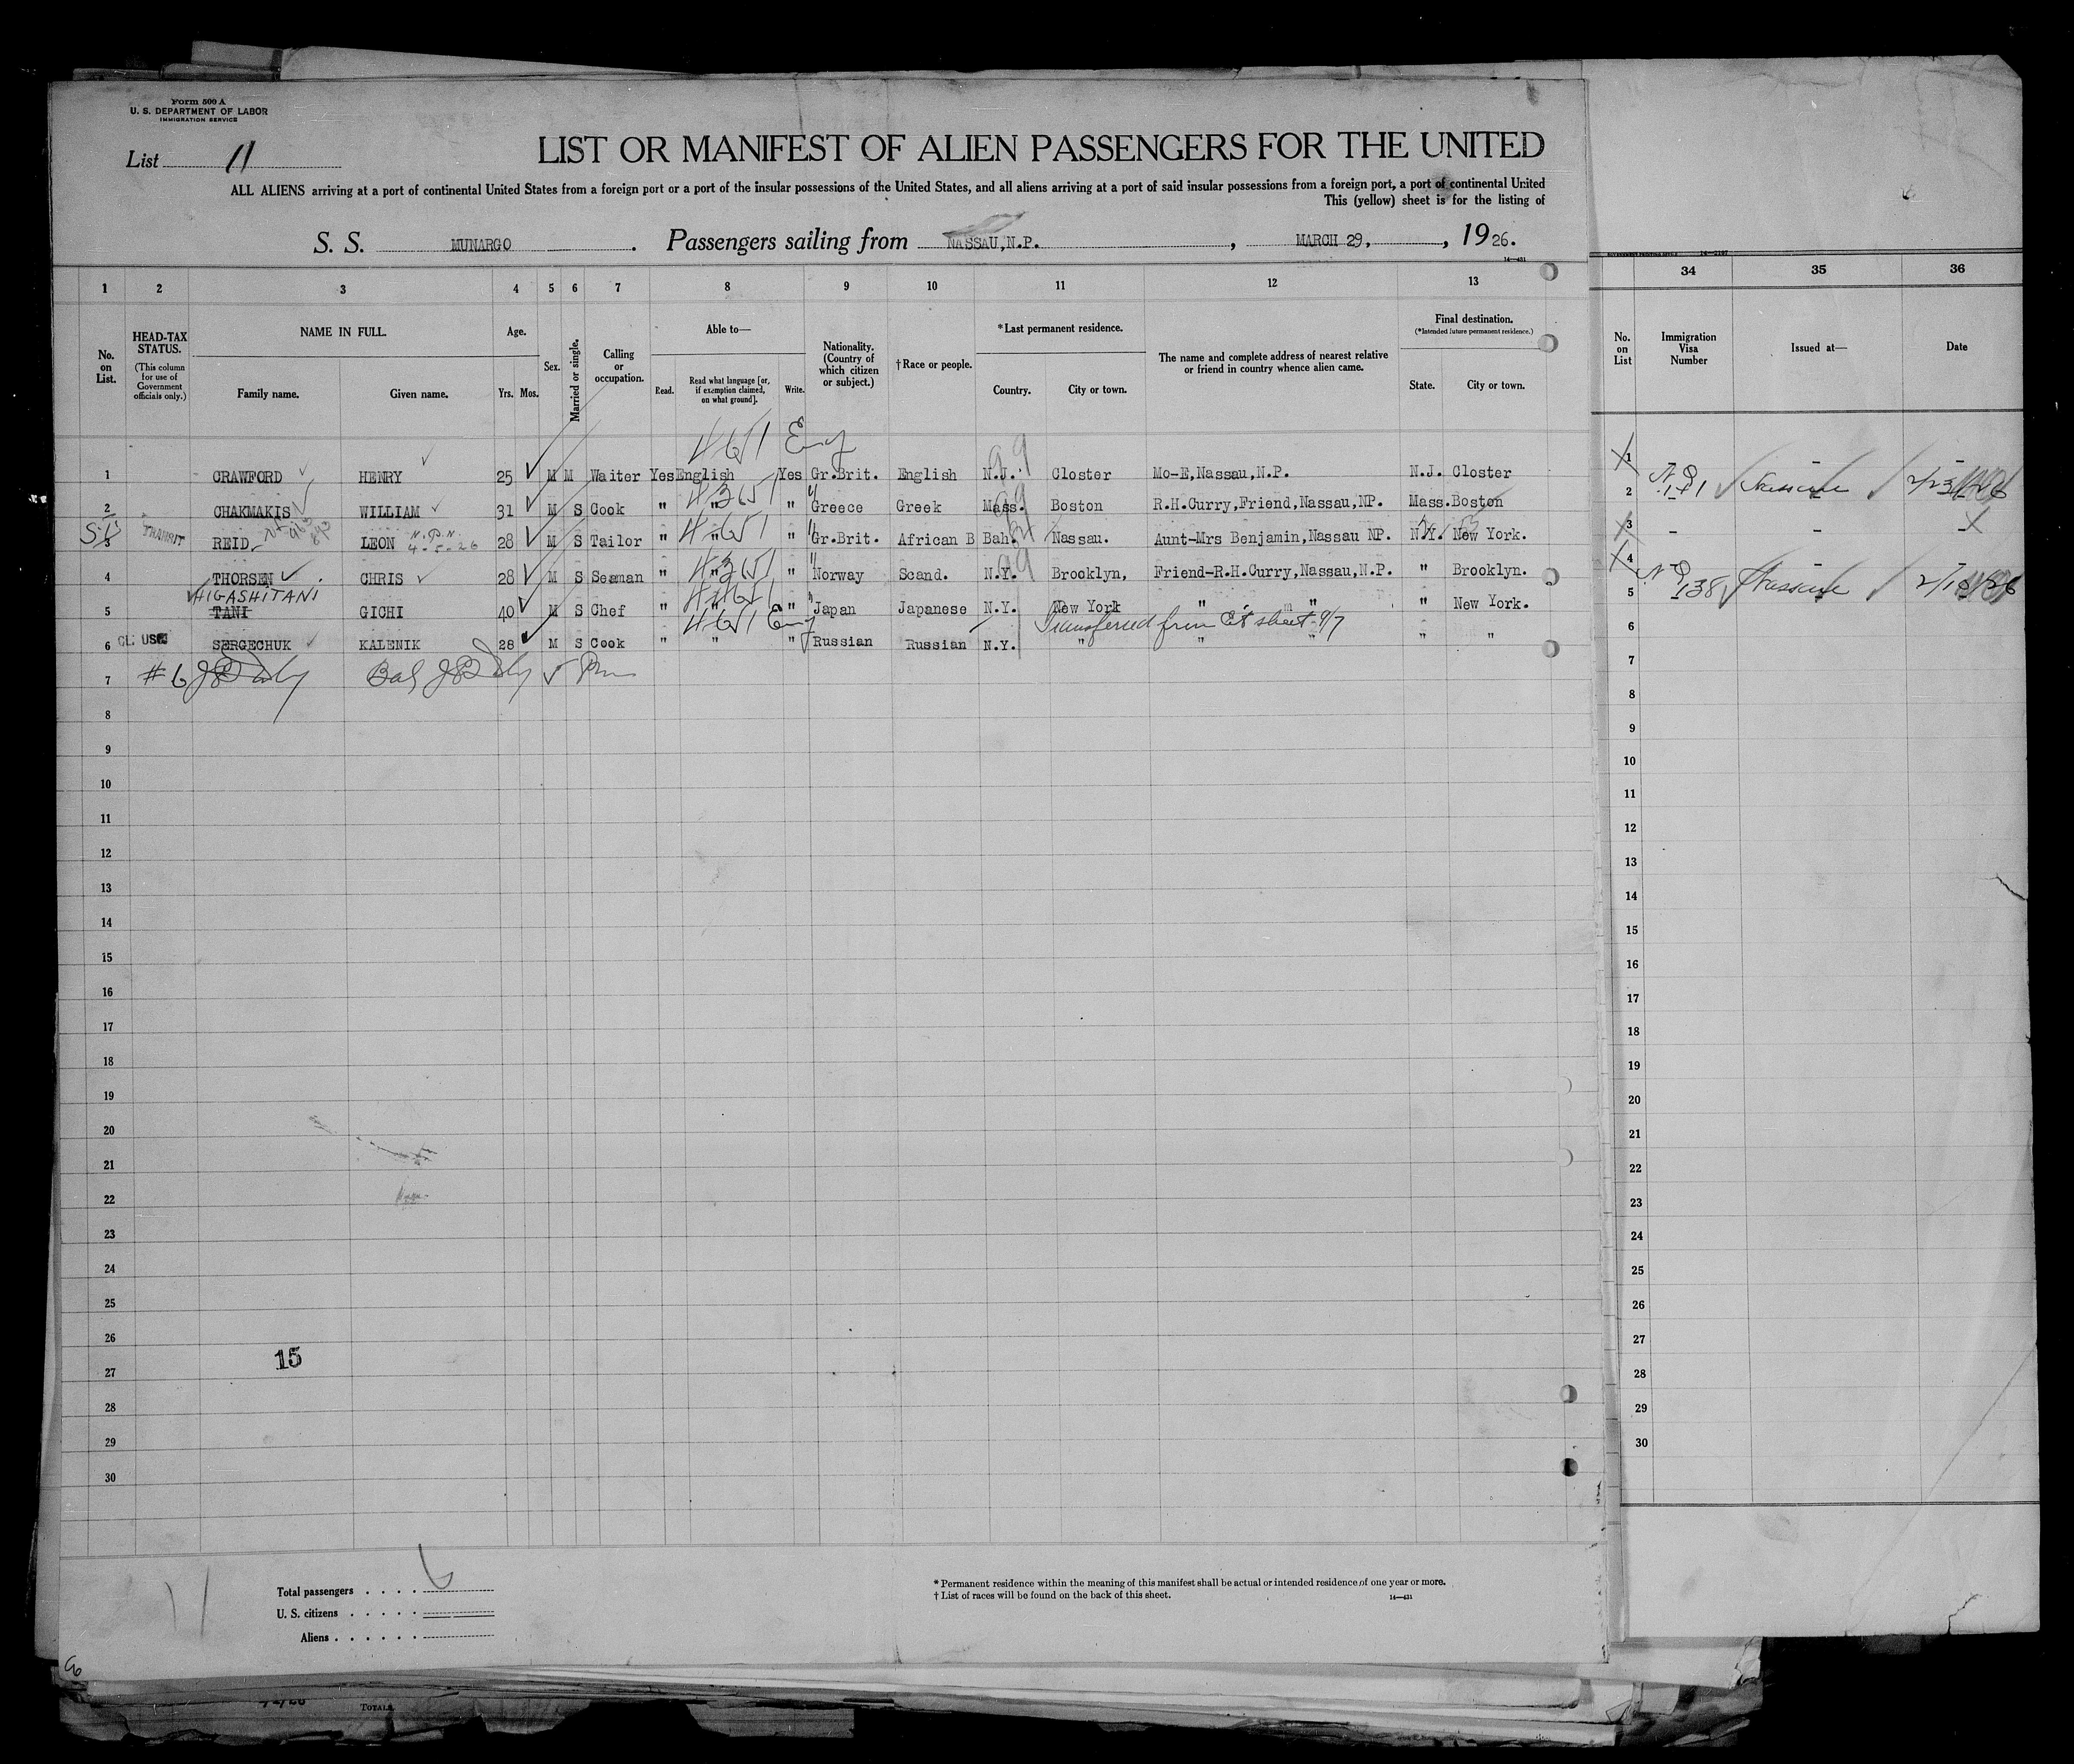 Form 500 A
U. S. DEPARTMENT OF LABOR
IMMIGRATION SERVICE
List 11
LIST OR MANIFEST OF ALIEN PASSENGERS FOR THE UNITED
ALL ALIENS arriving at a port of continental United States from a foreign port or a port of the insular possessions of the United States, and all aliens arriving at a port of said insular possessions from a foreign port, a port of continental United
This (yellow) sheet is for the listing of
S. S. MUNARGO. Passengers sailing from NASSAU,N.P., MARCH 29, , 1926.
14—431
1 2 3 4 5 6 7 8 9 10 11 12 13
No. on List.
HEAD-TAX STATUS.
(This column for use of Government officials only.)
NAME IN FULL.
Family name. Given name.
Age.
Yrs. Mos.
Sex.
Married or single.
Calling or occupation.
Able to—
Read. Read what language [or, if exemption claimed, on what ground]. Write.
Nationality. (Country of which citizen or subject.)
†Race or people.
*Last permanent residence.
Country. City or town.
The name and complete address of nearest relative or friend in country whence alien came.
Final destination.
(*Intended future permanent residence.)
State. City or town.
4651 Eng
1 CRAWFORD HENRY 25 M M Waiter Yes English Yes Gr.Brit. English N.J. Closter Mo-E,Nassau,N.P. N.J. Closter
2 CHAKMAKIS WILLIAM 31 M S Cook " " " Greece Greek Mass. Boston R.H.Curry,Friend,Nassau,NP. Mass.Boston
TRANSIT
3 REID LEON N.P.N. 4-5-26 28 M S Tailor " " " Gr.Brit. African B Bah. Nassau. Aunt-Mrs Benjamin,Nassau NP. N.Y. New York.
4 THORSEN CHRIS 28 M S Seaman " " " Norway Scand. N.Y. Brooklyn, Friend-R.H.Curry,Nassau,N.P. " Brooklyn.
HIGASHITANI
5 TANI GICHI 40 M S Chef " " " Japan Japanese N.Y. New York " " " " New York.
4651 Eng Transferred from Cit sheet 9/7
6 SERGECHUK KALENIK 28 M S Cook " " " Russian Russian N.Y. " " " " "
7 #6
8
9
10
11
12
13
14
15
16
17
18
19
20
21
22
23
24
25
26
15
27
28
29
30
Total passengers . . . . 6
U. S. citizens . . . . .
Aliens . . . . . .
11
* Permanent residence within the meaning of this manifest shall be actual or intended residence of one year or more.
† List of races will be found on the back of this sheet.
14—431
TOTALS
34 35 36
No. on List
Immigration Visa Number
Issued at—
Date
1 - -
2 141 Nassau 2/23/26
3 - - -
4
5 138 Nassau 2/18/26
6
7
8
9
10
11
12
13
14
15
16
17
18
19
20
21
22
23
24
25
26
27
28
29
30